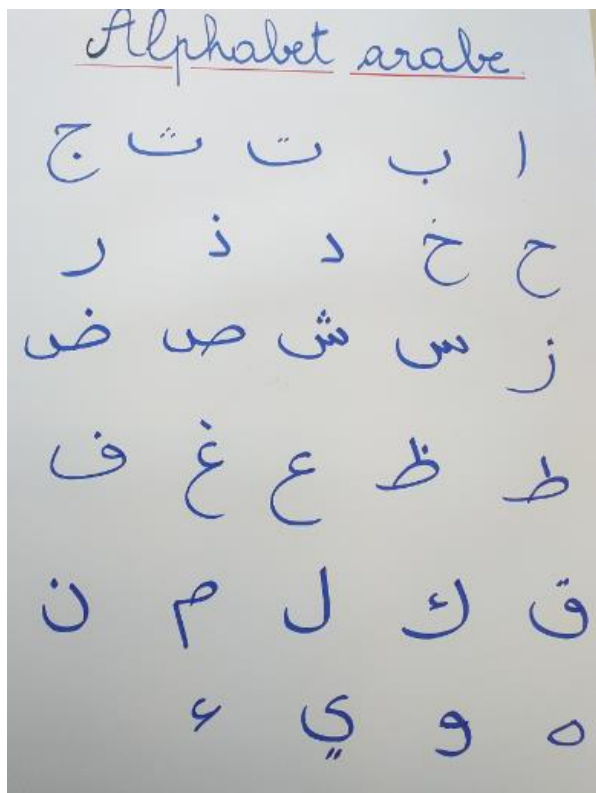 Alphabet arabe
ا ب ت ث ج
ح خ د ذ ر
ز س ش ص ض
ط ظ ع غ ف
ق ك ل م ن
ه و ي ء